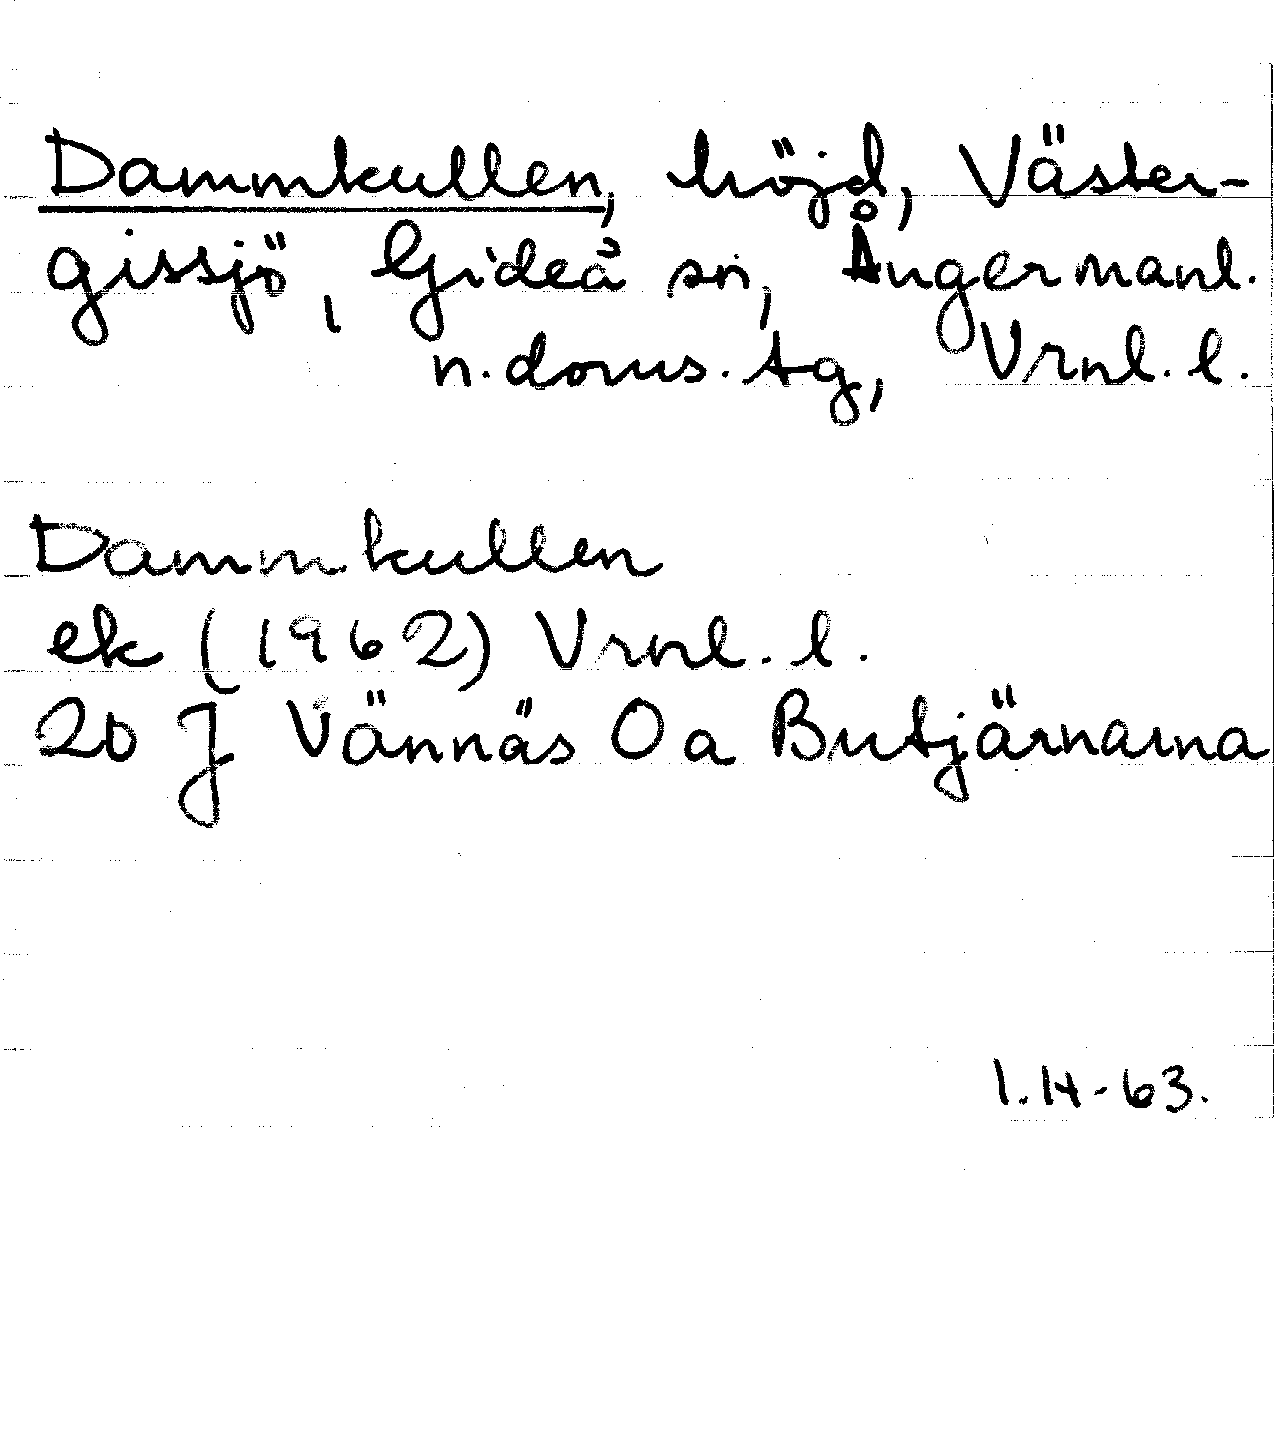 Dammkullen, höjd, Väster-
gissjö, Gideå sn, Ångermanl.
n. doms. tg, Vrnl. l.
Dammkullen
ek (1962) Vrnl. l.
20 J Vännäs 0a Brutjärnarna
1.14-63.